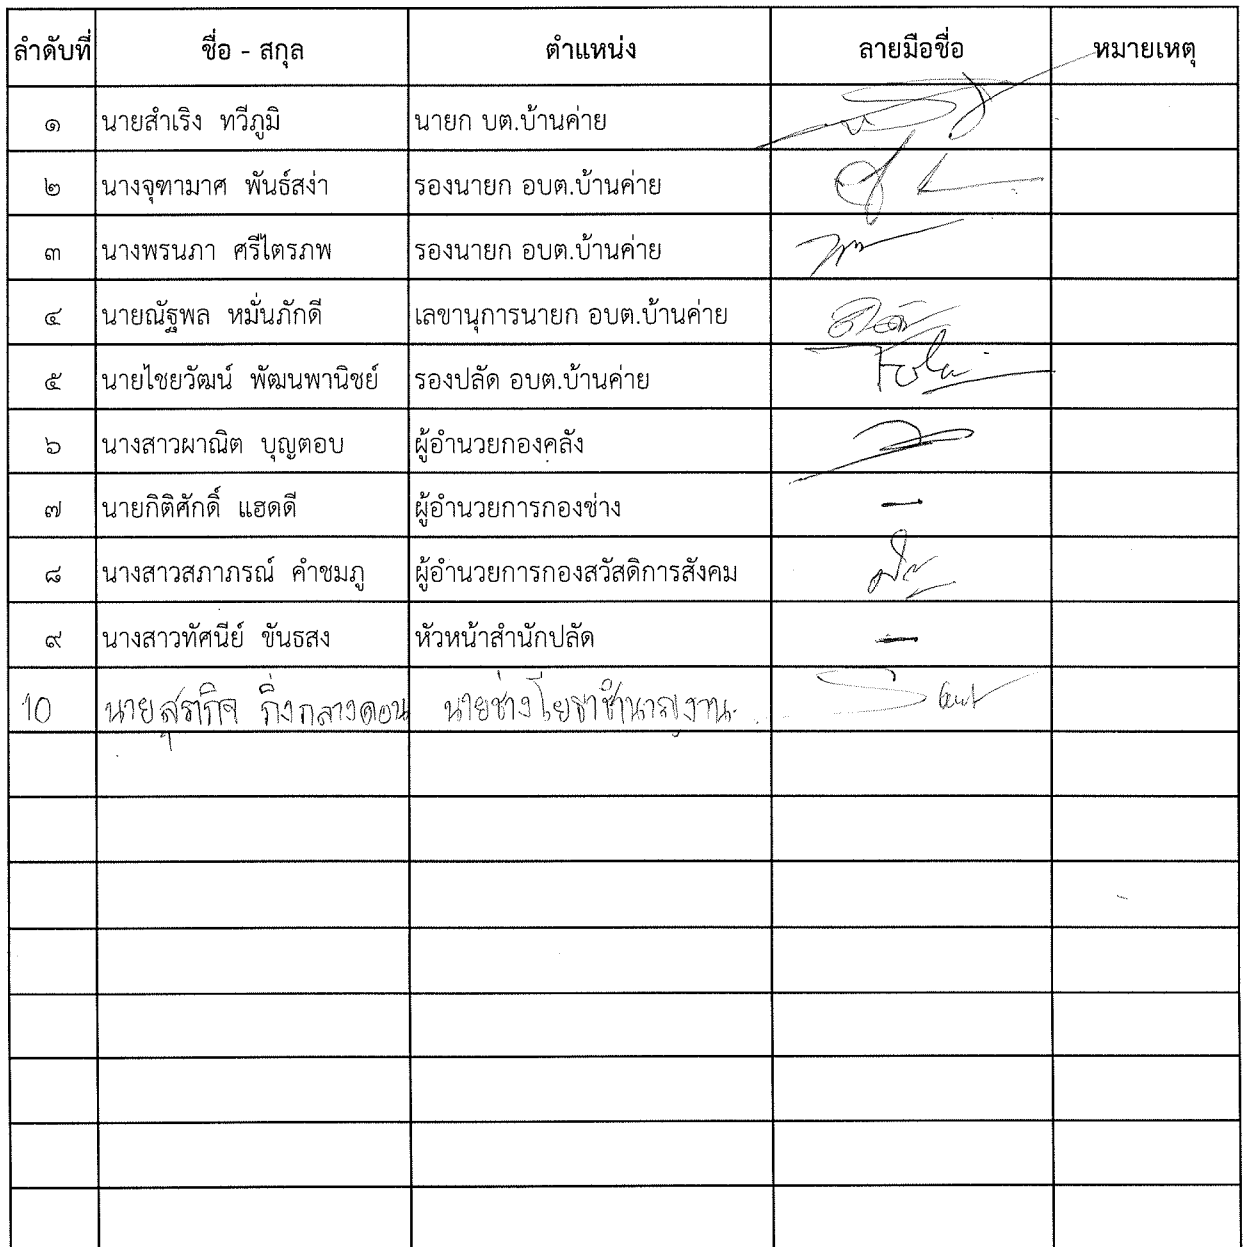 ลำดับที่ ชื่อ - สกุล ตำแหน่ง ลายมือชื่อ หมายเหตุ
๑ นายสำเริง ทวีภูมิ นายก บต.บ้านค่าย
๒ นางจุฑามาศ พันธ์สง่า รองนายก อบต.บ้านค่าย
๓ นางพรนภา ศรีไตรภพ รองนายก อบต.บ้านค่าย
๔ นายณัฐพล หมั่นภักดี เลขานุการนายก อบต.บ้านค่าย
๕ นายไชยวัฒน์ พัฒนพานิชย์ รองปลัด อบต.บ้านค่าย
๖ นางสาวผาณิต บุญตอบ ผู้อำนวยกองคลัง
๗ นายกิติศักดิ์ แฮดดี ผู้อำนวยการกองช่าง –
๘ นางสาวสภาภรณ์ คำชมภู ผู้อำนวยการกองสวัสดิการสังคม
๙ นางสาวทัศนีย์ ขันธสง หัวหน้าสำนักปลัด –
10 กิ่งกลางดอน นายช่างโยธาชำนาญงาน